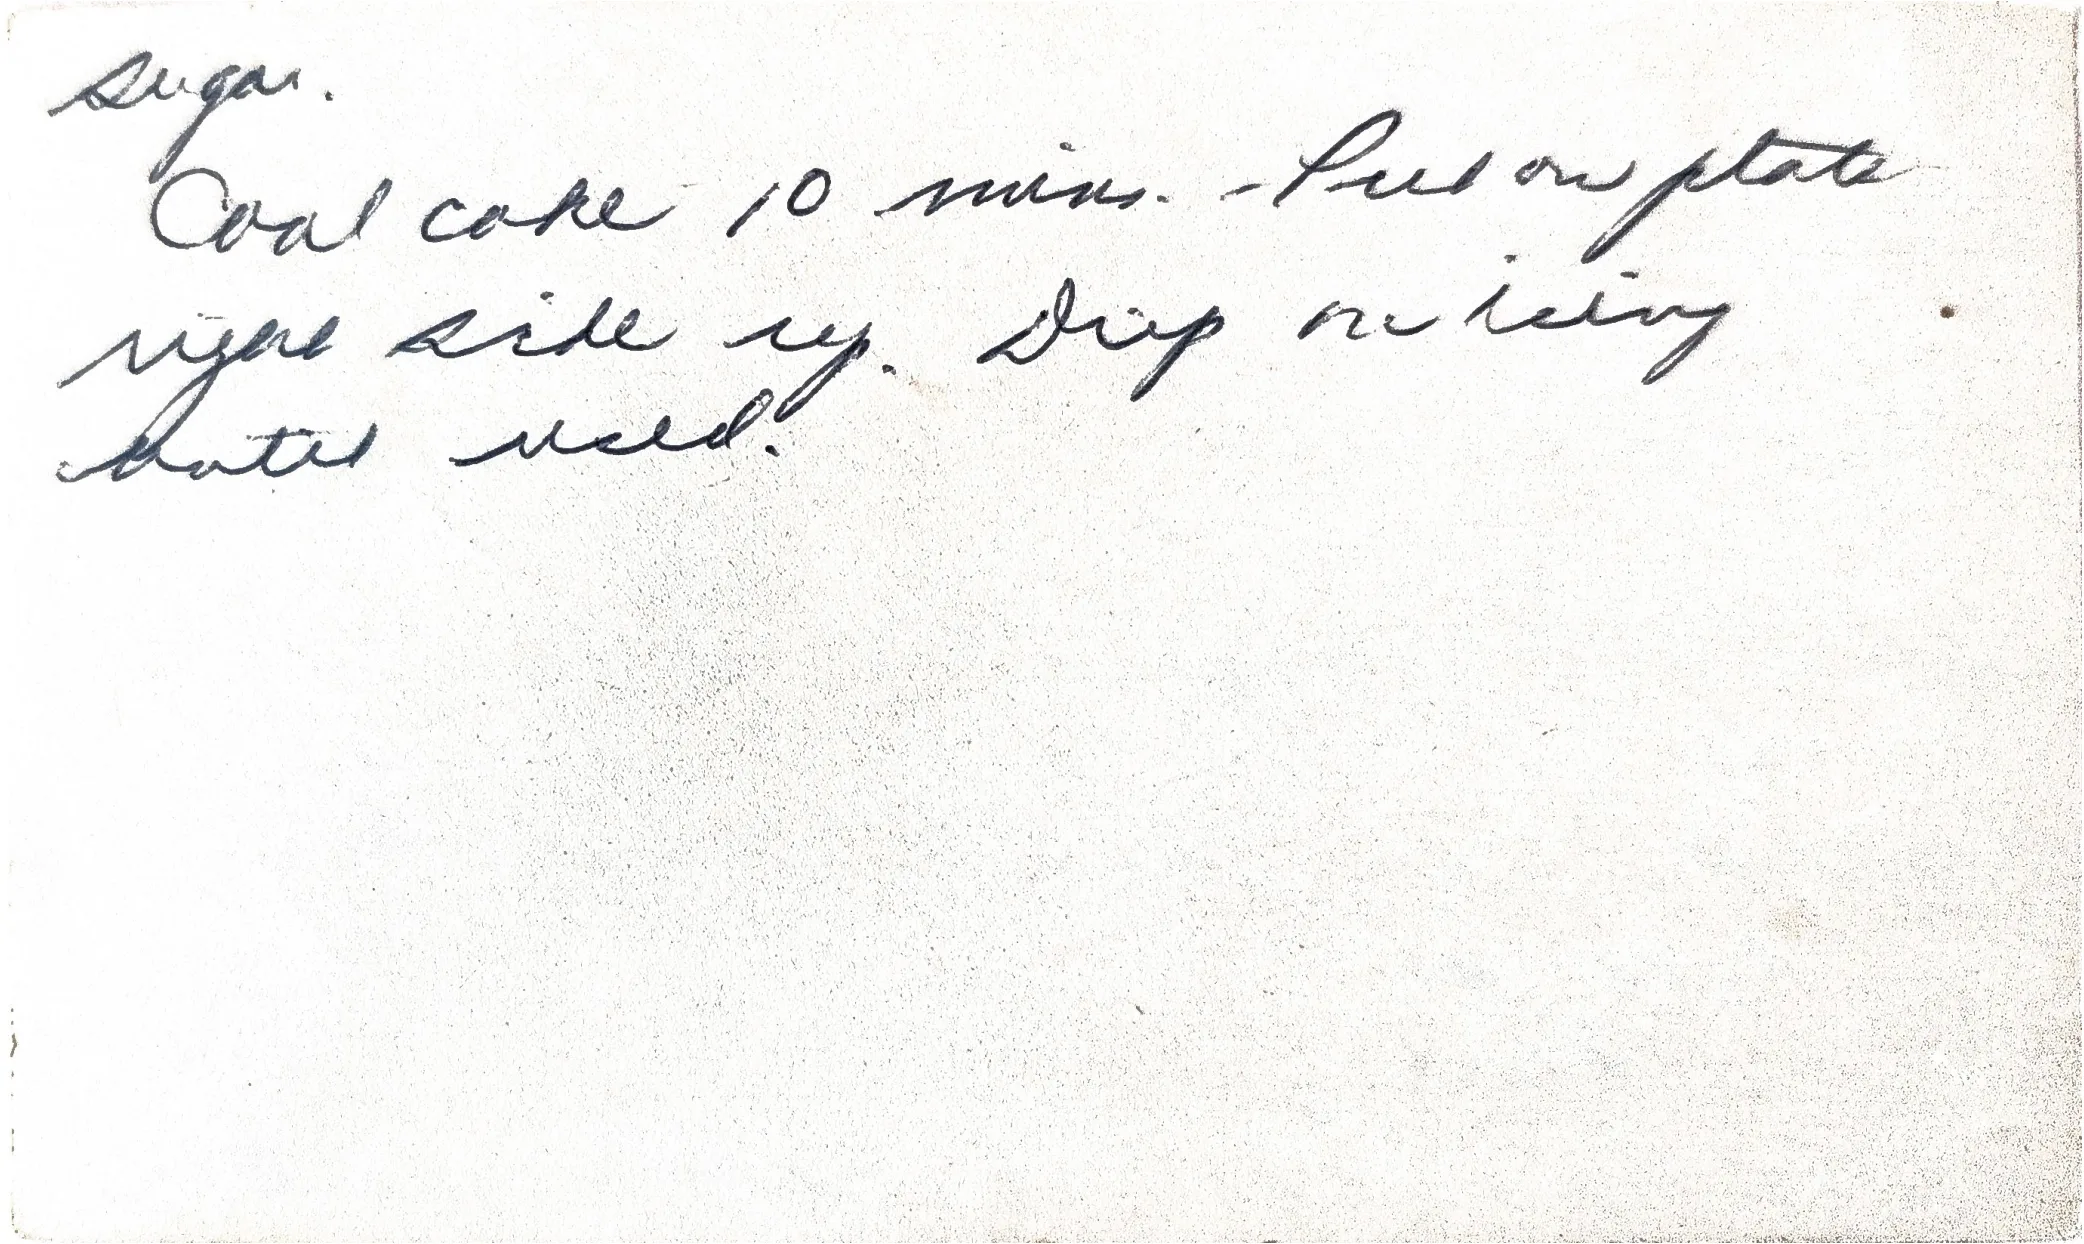 sugar.
Cool cake 10 mins. - Put on plate
right side up. Drip on icing
until used.